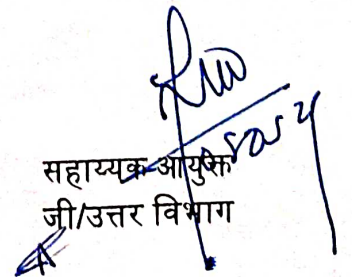 सहाय्यक आयुक्त
जी/उत्तर विभाग